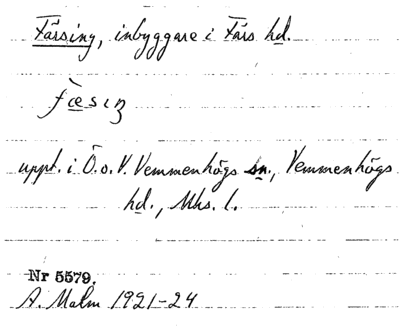 Färsing, inbyggare i Färs hd.
fæsıꞑ
uppt. i Ö. o. V. Vemmenhögs sn., Vemmenhögs
hd., Mhs. l.
Nr 5579.
A. Malm 1921-24